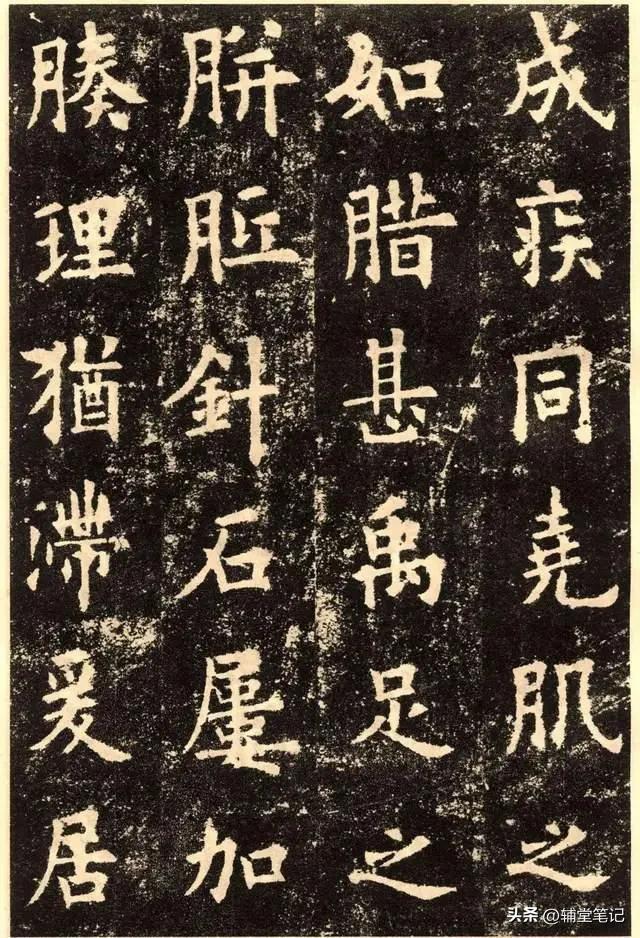 成疾同堯肌之
如腊甚禹足之
胼胝針石屢加
腠理猶滯爰居
头条 @辅堂笔记